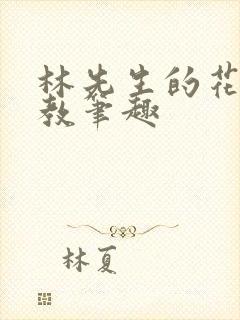 林先生的花
教笔趣
林夏